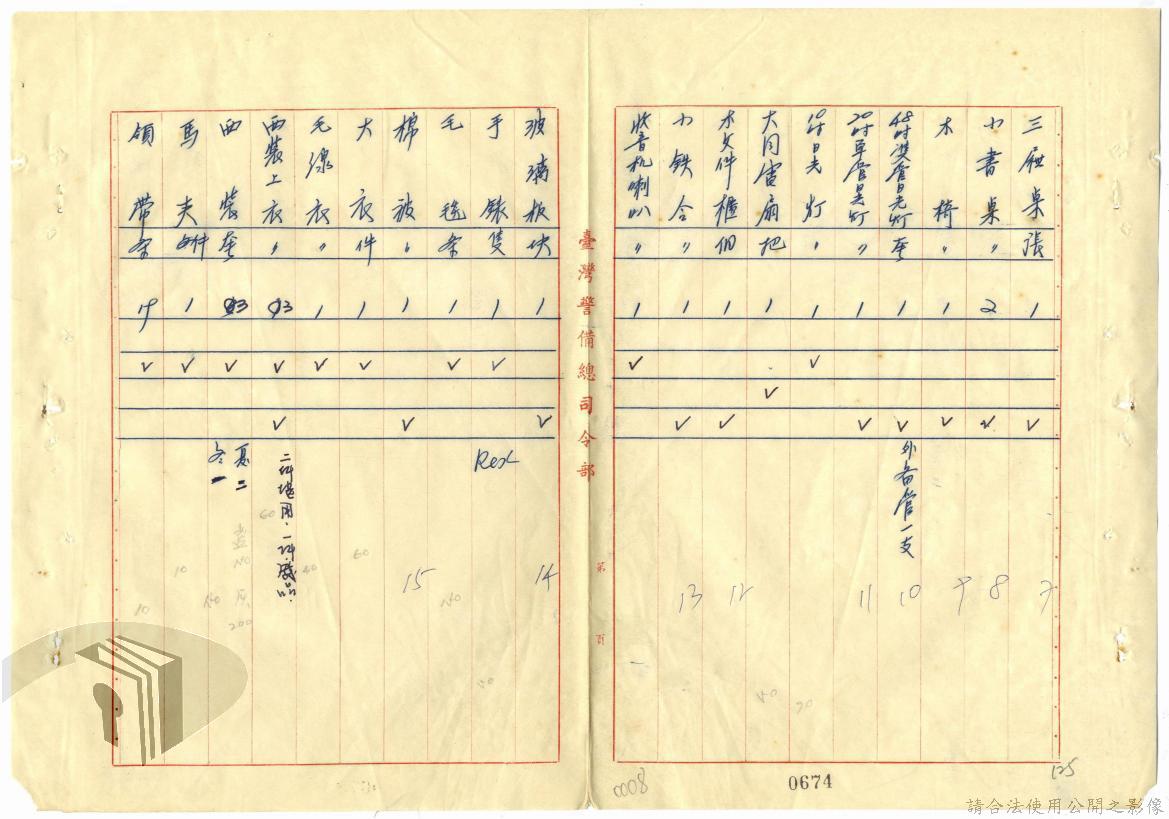 三屜桌 張 1 7
小書桌 〃 2 8
木椅 〃 1 9
48吋雙管日光灯 座 1 外备管一支 10
20吋單管日光灯 〃 1 11
10吋日光灯 〃 1
大同電扇 把 1
木文件櫃 個 1 12
小鉄合 〃 1 13
收音机喇叭 〃 1
臺灣警備總司令部
第 頁
玻璃板 块 1 14
手錶 隻 1 Rex
毛毯 条 1
棉被 〃 1 15
大衣 件 1
毛線衣 〃 1
西裝上衣 〃 3 二件堪用．一件廢品．
西裝 套 3 夏二 冬一
馬夾 件 1
領帶 条
0008
0674
125
請合法使用公開之影像